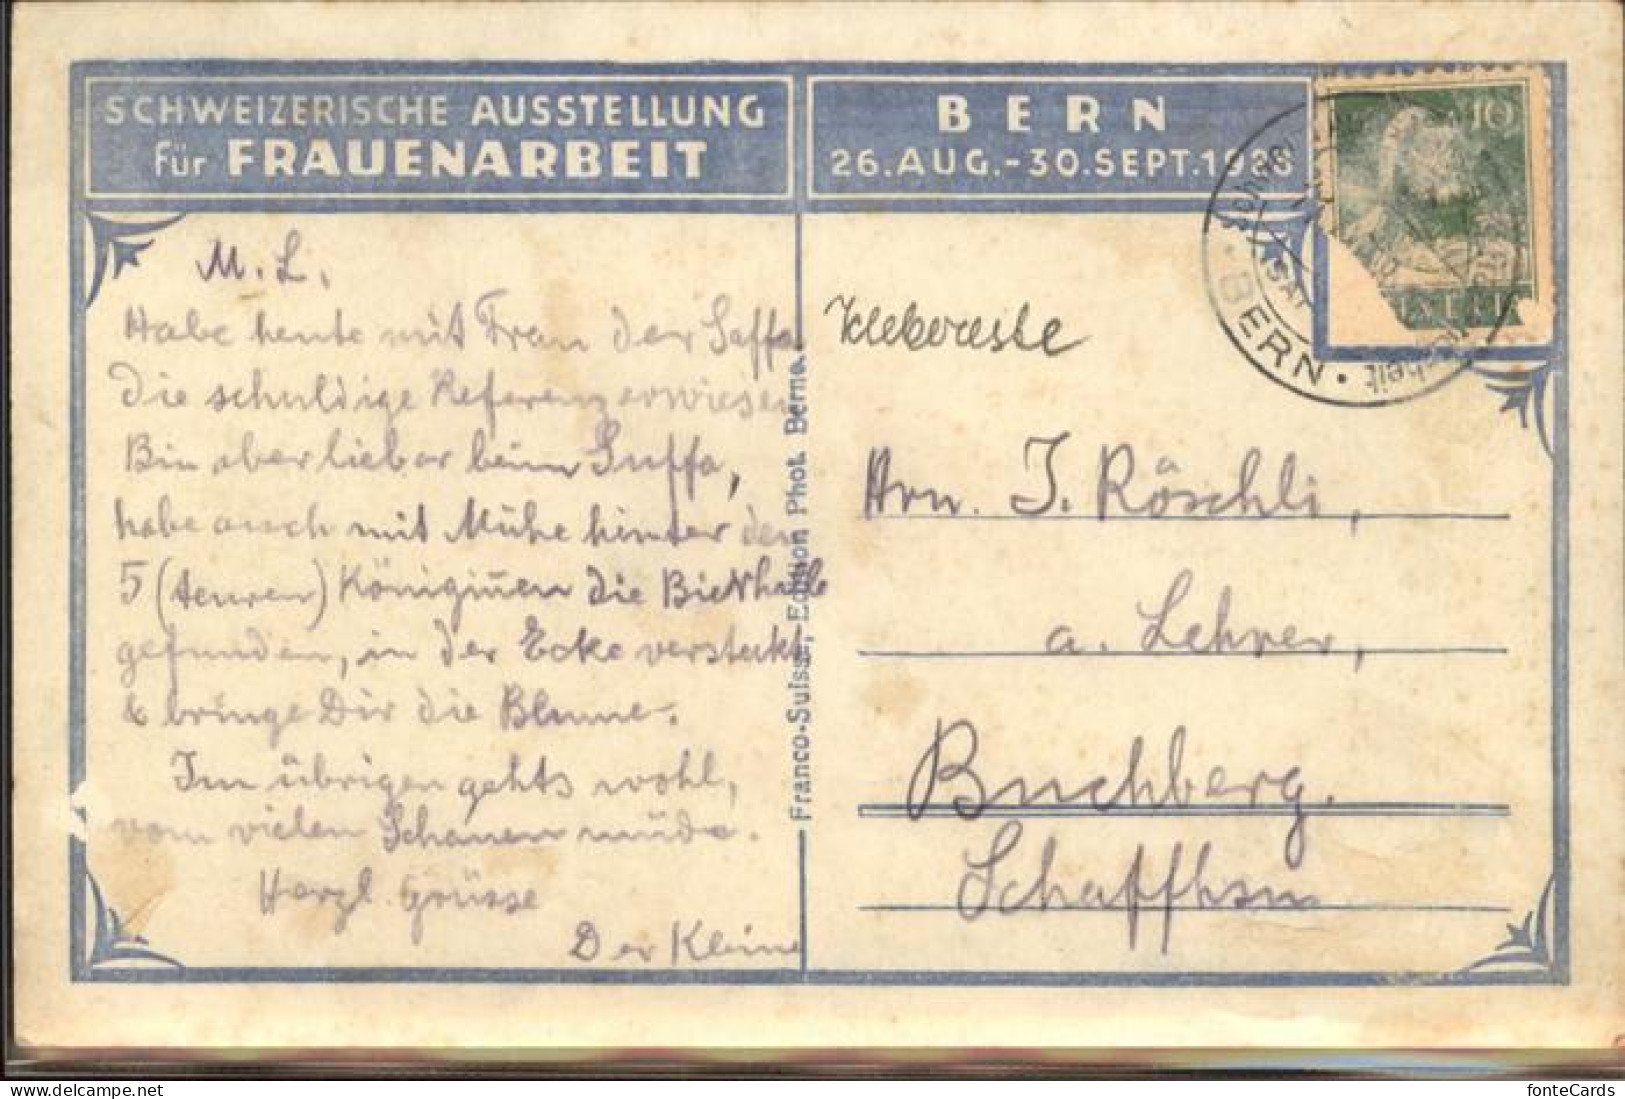 SCHWEIZERISCHE AUSSTELLUNG
für FRAUENARBEIT
BERN
26. AUG.-30. SEPT. 1928
M. L.
Habe heute mit Frau der Saffa
die schuldige Referenz erwiesen
Bin aber lieber beim Suffa,
habe auch mit Mühe hinter den
5 (teuren) Königinnen die Bierhalle
gefunden, in der Ecke versteckt
& bringe Dir die Blume.
Im übrigen gehts wohl,
vom vielen Schauen müde.
Herzl. Grüsse
Der Kleine
Franco-Suisse, Edition Phot. Berne.
Klebereste
10
BERN
Hrn. J. Röschli,
a. Lehrer,
Buchberg.
Schaffhsn
fonteCards